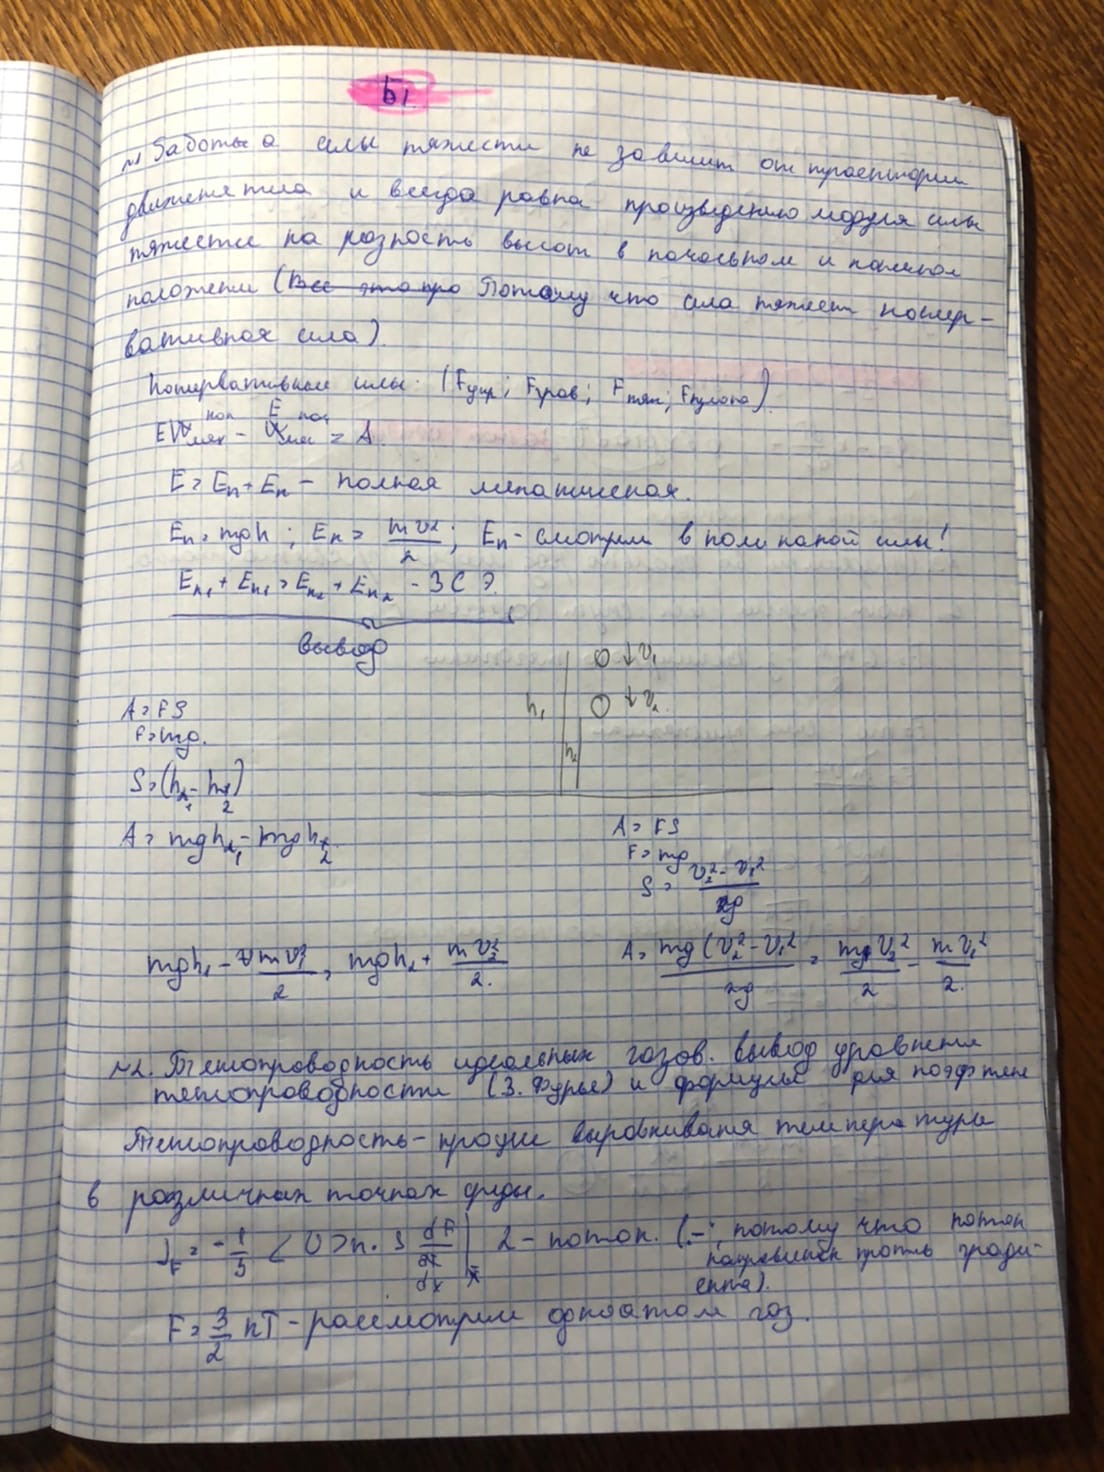 Б1
№1 Работы а силы тяжести не зависит от траектории
движения тела и всегда равна произведению модуля силы
тяжести на разность высот в начальном и конечном
положении (Все это про Потому что сила тяжест консер-
вативная сила).
Консервативные силы: (Fупр; Fграв; Fтяж; Fкулона).
= A.
E = Eп + Eк - полная механическая.
Eп = mgh ; Eк = mv²/2 ; Eп - смотрим в поле какой силы!
Eк₁ + Eп₁ = Eк₂ + Eп₂ - ЗСЭ.
вывод
↓v₁
h₁ ↓v₂
h₂
A = FS
F = mg.
S = (h₁ - h₂)
A = mgh₁ - mgh₂
A = FS
F = mg
S = (v₂² - v₁²)/2g
mgh₁ - mv₁²/2 = mgh₂ + mv₂²/2.
A = mg(v₂² - v₁²)/2g = mgv₂²/2 - mv₁²/2.
№2. Теплопроводность идеальных газов. вывод уравнения
теплопроводности (З. Фурье) и формулы для коэффиц
Теплопроводность - процесс выравнивания температуры
в различных точках среды.
= -1/3 <v>n · S dF/dx | x 2 - поток. (-; потому что поток
направлен против гради-
ента).
F = 3/2 kT - рассмотрим одноатом газ.